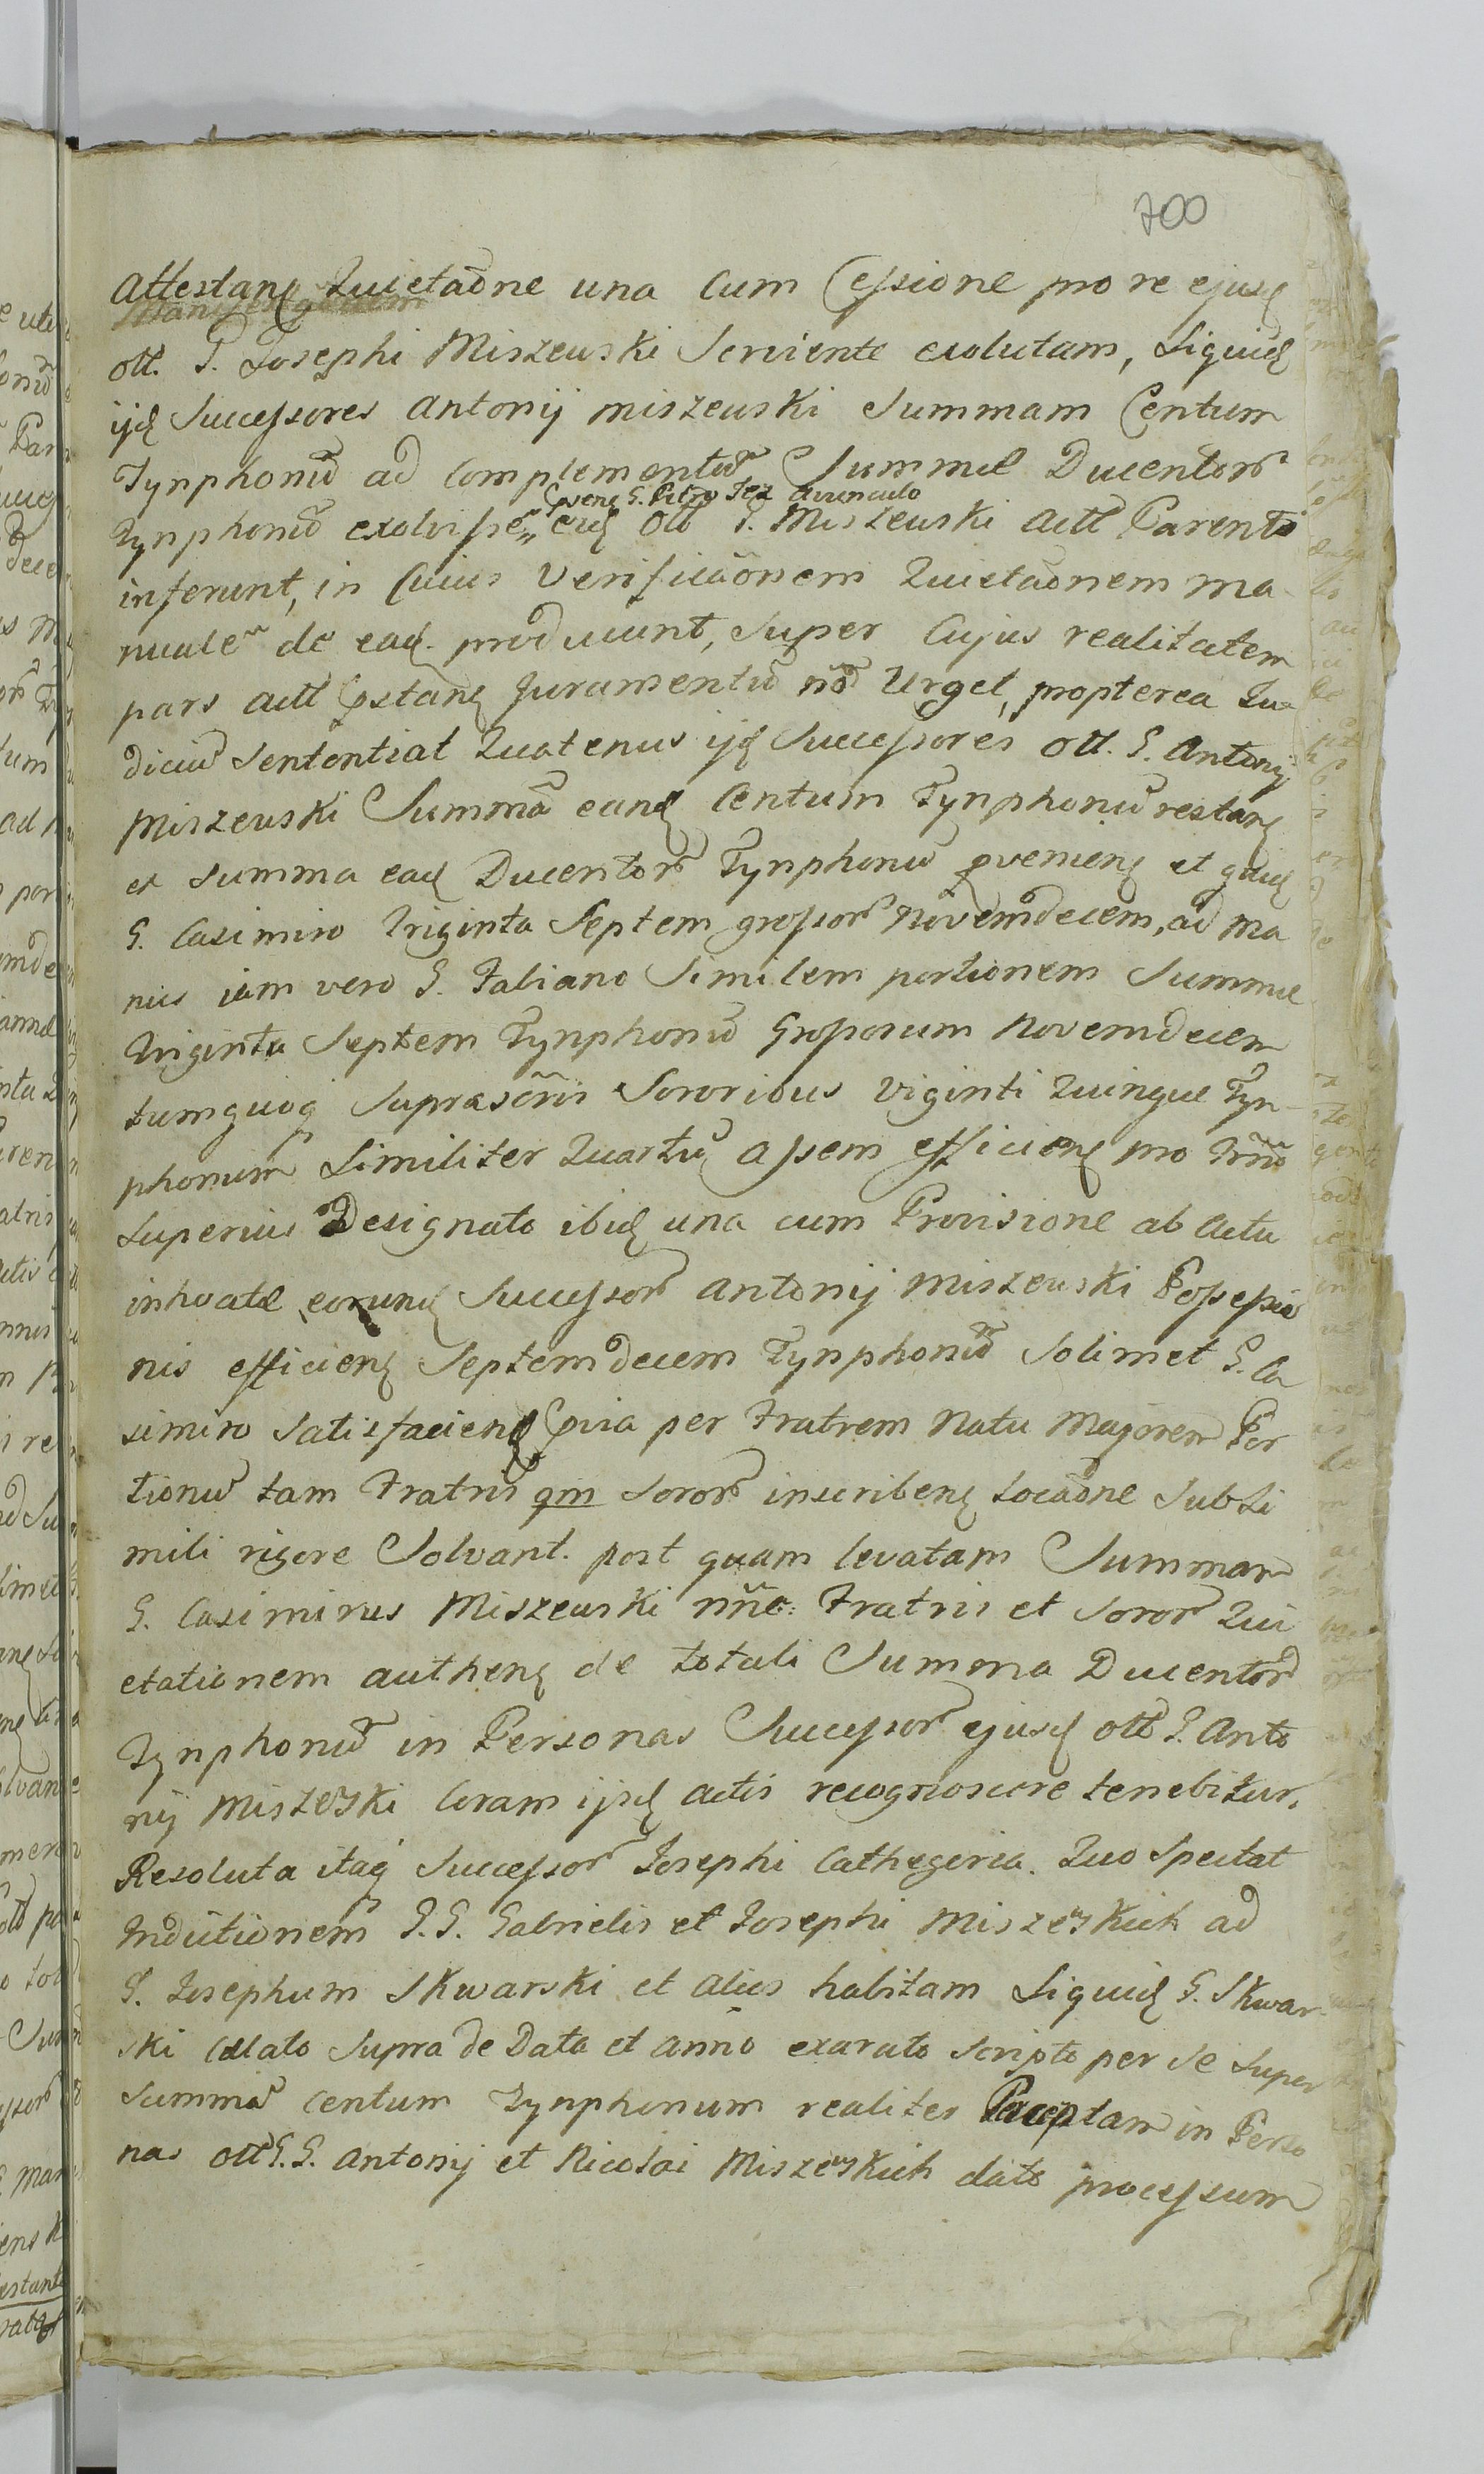 700
Attestanẽ Quietaõne una Cum Cessione pro re ejusd
olt. G. Josephi Miszewski Serviente exolutam, Siquid
ijd Successores Antonij Miszewski Summam Centum
Tynphonũ ad Complementũ Summæ Ducentor
Coram G. Petro Jez Avunculo
Tynphonũ exolvisse eid Olt G. Miszewski Actt Parenti
inferunt, in Cuius Verificaõnem Quietaõnem ma
nualẽ de ead. producunt, Super Cujus realitatem
pars actt Juramentũ nõ Urget, propterea Ju
diciũ Sententiat Quatenus ijd Successores olt. G. Antonij
Miszewski Summã eand Centum Tynphonũ restanẽ
ex Summa ead Ducentor Tynphonũ et quid
G. Casimiro Triginta Septem grossor Novemdecem, ad ma
nus iam vero G. Fabiano Similem portionem Summæ
Triginta Septem Tynphonũ Grossorum Novemdecem
tumquoq Suprascris Sororibus Viginti Quinque Tyn-
phonum Similiter Quartũ assem efficienẽ pro trno
Superius Designato ibid una cum Provisione ab Actu
inhoatæ eorund Successor Antonij Miszewski Possessio
nis efficienẽ Septemdecem Tynphonũ Solimet G. Ca
simiro Satisfacienẽ per Fratrem Natu Majorem Por
tionũ tam Fratris qm Soror inscribenẽ Locaõne Sub Si
mili rigore Solvant. post quam levatam Summam
G. Casimirus Miszewski nñe: Fratris et Soror Qui
etationem authenẽ de totali Summa Ducentor
Tynphonũ in Personas Successor ejusd olt G. Anto
nij Miszewski Coram ijsd actis recognoscere tenebitur.
Resoluta itaq Successor Josephi Cathegoria. Quo Spectat
Inductionem G. G. Gabrielis et Josephi Miszewskich ad
G. Josephum Skwarski et alios habitam Siquid G. Skwar-
ski Collato Supra de Data et Anno exarato Scripto per Se Super
Summã Centum Tynphonum realiter Perceptam in Perso
nas olt G. G. Antonij et Nicolai Miszewskich dato processum